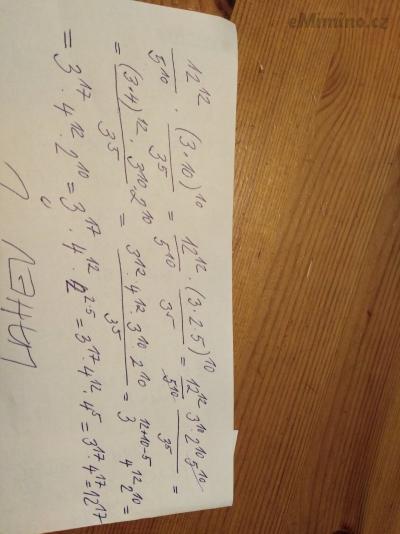 eMimino.cz
12^12/5^10 · (3·10)^10/3^5 = 12^12/5^10 · (3·2·5)^10/3^5 = 12^12/5^10 · 3^10·2^10·5^10/3^5 =
= (3·4)^12 · 3^10·2^10/3^5 = 3^12·4^12·3^10·2^10/3^5 = 3^12+10-5 4^12 2^10 =
= 3^17 · 4^12 · 2^10 = 3^17 · 4^12 · 2^2·5 = 3^17 · 4^12 · 4^5 = 3^17 · 4^17 = 12^17